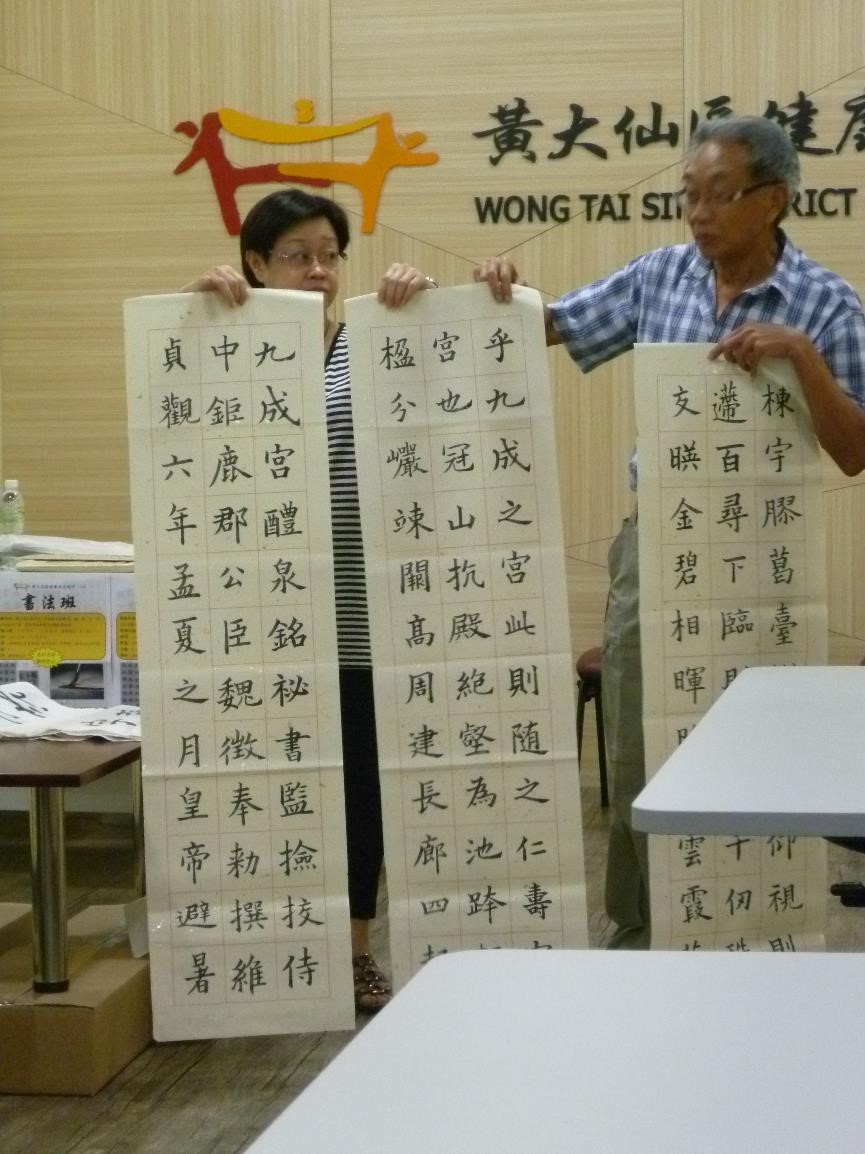 黃大仙區健
WONG TAI
九成宮醴泉銘祕書監撿挍侍
中鉅鹿郡公臣魏徵奉勑撰維
貞觀六年孟夏之月皇帝避暑
乎九成之宮此則随之仁壽
宮也冠山抗殿絶壑為池跨
楹分巖竦闕高周建長廊四
棟宇膠葛臺 仰視則
遰百尋下臨 千仞珠
交暎金碧相暉 雲霞
書法班